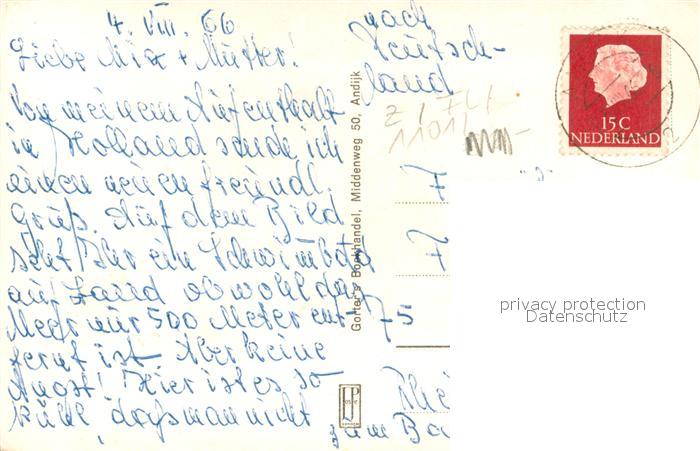 4. VIII. 66
Liebe Mia + Mutter!
Von meinem Aufenthalt
in Holland sende ich
einen freundl.
Gruß. Auf dem Bild
seht Ihr ein Schwimmbad
auf Land obwohl das
Meer nur 500 Meter ent-
fernt ist. Aber keine
Angst! Hier ist es so
kühl, dass man nicht
zum Ba
nach
Deutsch-
land
75
Rhei
Gorter's Boekhandel, Middenweg 50, Andijk
15 C
NEDERLAND
privacy protection
Datenschutz